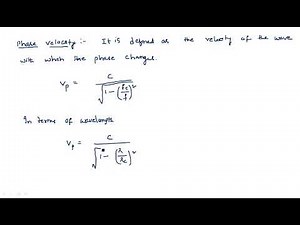 Phase velocity :- It is defined as the velocity of the wave
with which the phase changes.
Vp = C / √(1 - (fc/f)²)
In terms of wavelength
Vp = C / √(1 - (λ/λc)²)